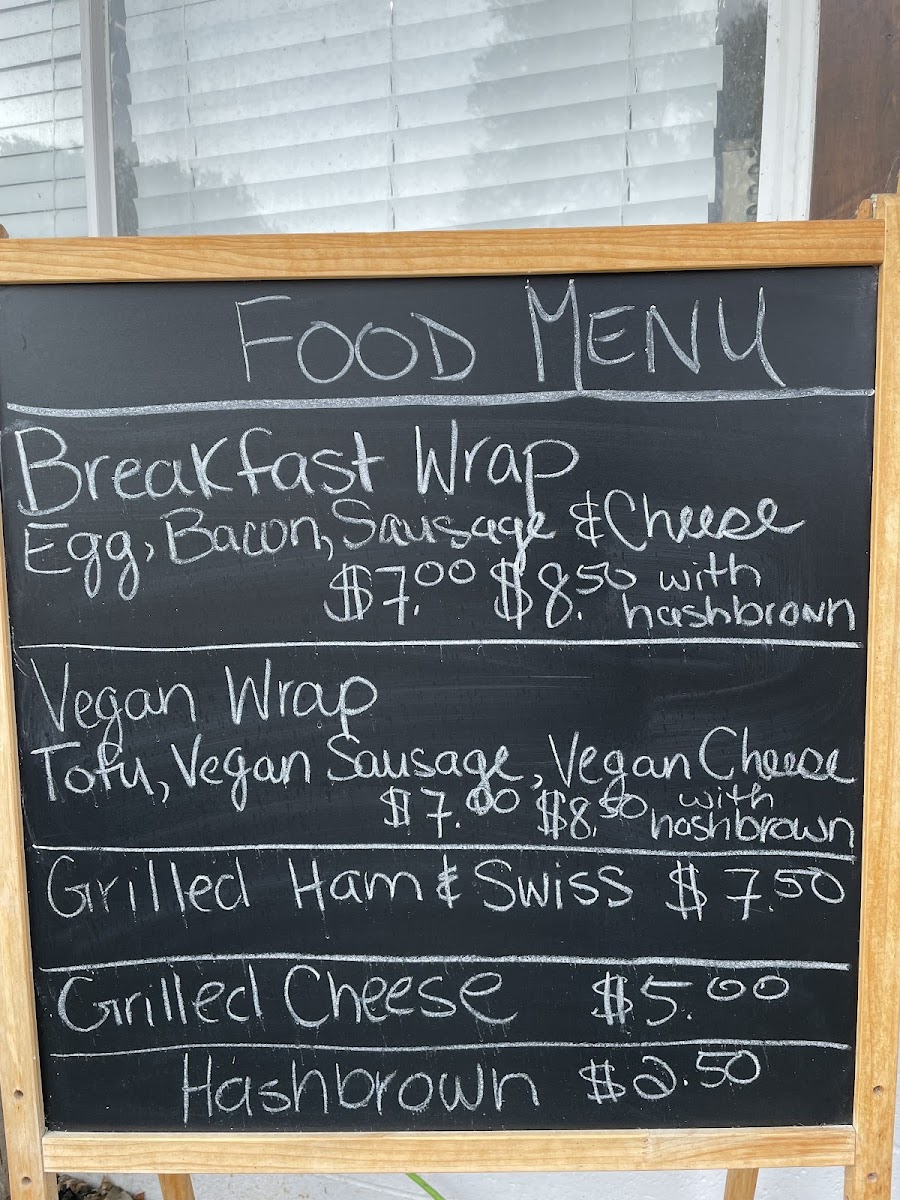 FOOD MENU
Breakfast Wrap
Egg, Bacon, Sausage & Cheese
$7.00 $8.50 with
hashbrown
Vegan Wrap
Tofu, Vegan Sausage, Vegan Cheese
$7.00 $8.50 with
hashbrown
Grilled Ham & Swiss $7.50
Grilled Cheese $5.00
Hashbrown $2.50